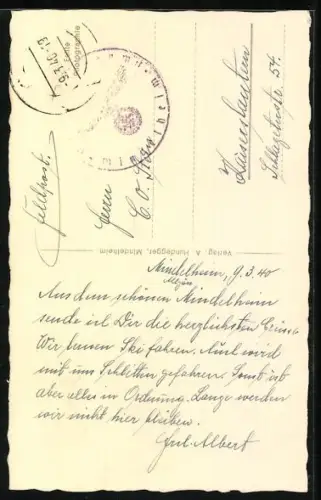 Echte
Photographie
9.3.40-19
Feldpost.
Herrn
C. O.
Kaiserslautern
Schlageterstr. 54.
Verlag A. Hundegger, Mindelheim
Mindelheim, 9.3.40
Aus dem schönen Mindelheim
sende ich Dir die herzlichsten Grüsse
Wir lernen Ski fahren. Auch wird
mit uns Schlitten gefahren. Sonst ist
aber alles in Ordnung. Lange werden
wir nicht hier bleiben.
Albert